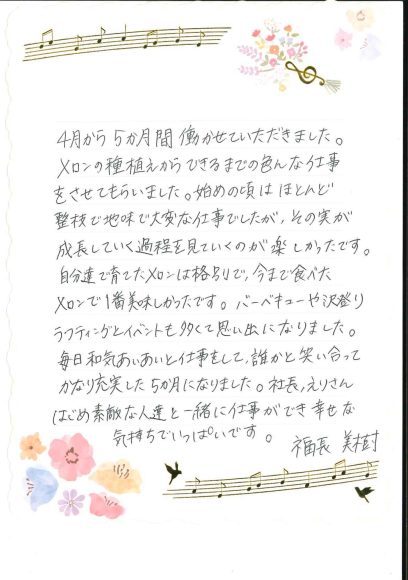 4月から5か月間働かせていただきました。
メロンの種植えからできるまでの色んな仕事
をさせてもらいました。始めの頃はほとんど
整枝で地味で大変な仕事でしたが、その実が
成長していく過程を見ていくのが楽しかったです。
自分達で育てたメロンは格別で、今まで食べた
メロンで1番美味しかったです。バーベキューや沢登り
ラフティングとイベントも多くて思い出になりました。
毎日和気あいあいと仕事をして、誰かと笑い合って
かなり充実した5か月になりました。社長、えりさん
はじめ素敵な人達と一緒に仕事ができ幸せな
気持ちでいっぱいです。
福長 美樹